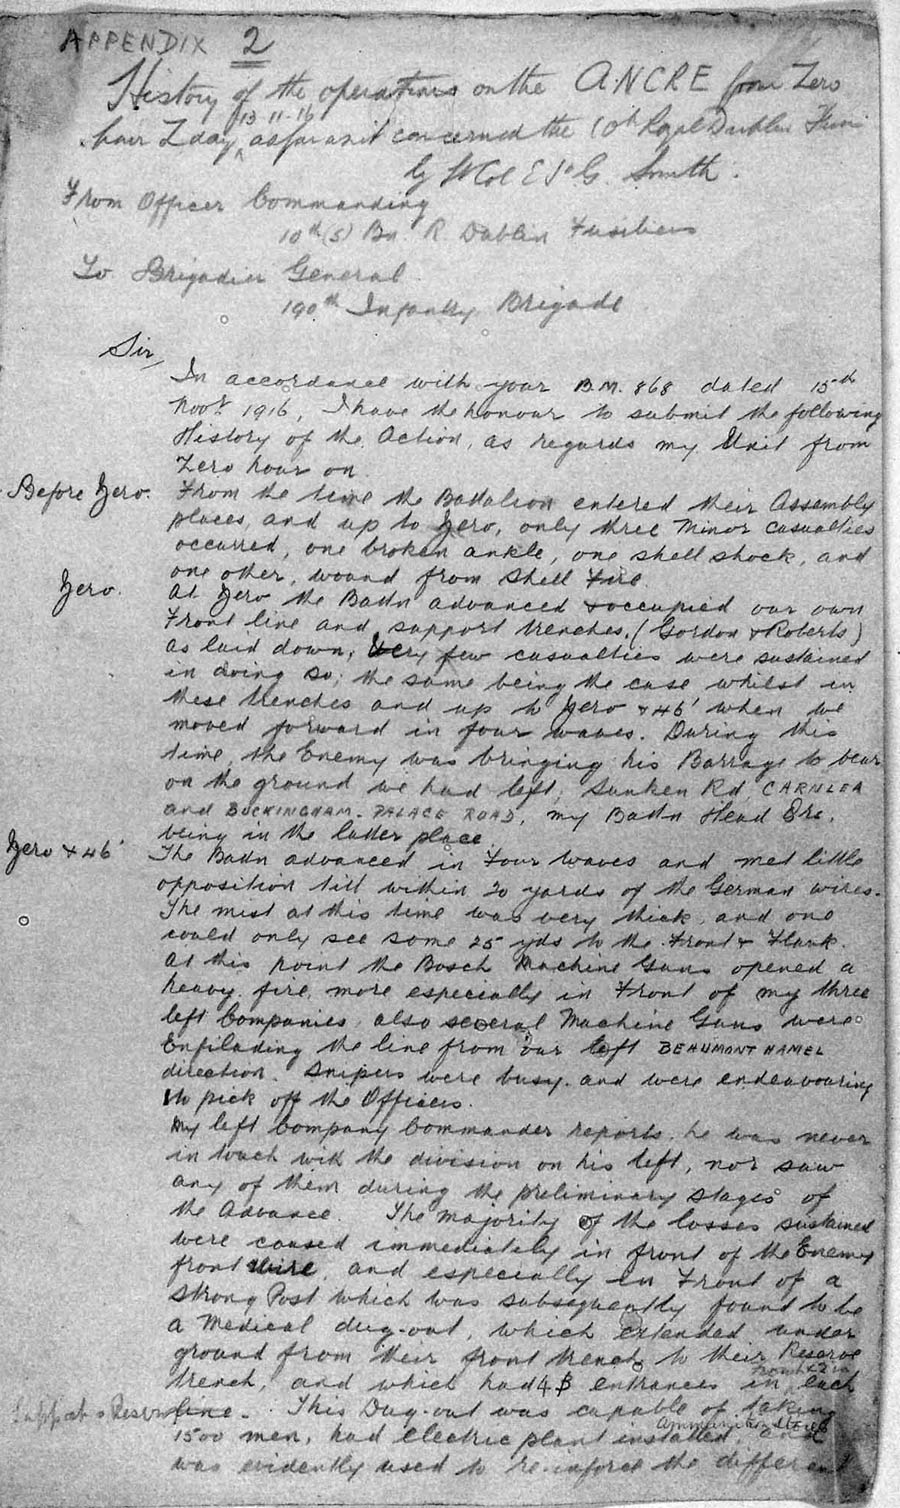 APPENDIX 2
History of the operations on the ANCRE from Zero
hour Z day 13-11-16 as far as it concerned the 10th Royal Dublin Fusi
by Lt Col E St G. Smith.
From Officer Commanding
10th (S) Bn. R Dublin Fusiliers
To Brigadier General
190th Infantry Brigade
Sir,
In accordance with your B.M. 868 dated 15th
Novr 1916, I have the honour to submit the following
History of the Action, as regards my Unit from
Zero hour on.
Before Zero. From the time the Battalion entered their Assembly
places, and up to Zero, only three Minor casualties
occurred, one broken ankle, one shell shock, and
one other, wound from Shell Fire.
Zero. At Zero the Battn advanced & occupied our own
Front line and support trenches. (Gordon & Roberts)
as laid down, Very few casualties were sustained
in doing so, the same being the case whilst in
these trenches and up to Zero + 46' when we
moved forward in four waves. During this
time, the Enemy was bringing his Barrage to bear
on the ground we had left, Sunken Rd, CARNLEA
and BUCKINGHAM-PALACE ROAD, my Battn Head Qrs.
being in the latter place.
Zero + 46' The Battn advanced in Four Waves and met little
opposition till within 20 yards of the German wires.
The mist at this time was very thick, and one
could only see some 25 yds to the Front & Flank.
At this point the Bosch Machine Guns opened a
heavy fire, more especially in Front of my three
left Companies, also several Machine Guns were
Enfilading the line from our left BEAUMONT HAMEL
direction. Snipers were busy and were endeavouring
to pick off the Officers.
My left Company Commander reports he was never
in touch with the division on his left, nor saw
any of them during the preliminary stages of
the Advance. The Majority of the losses sustained
were caused immediately in front of the Enemy
front wire, and especially in Front of a
strong Post which was subsequently found to be
a Medical dug-out, which extended under
ground from their front trench to their Reserve
trench, and which had 4 entrances in front & 2 in each
Support & Reserve line. This Dug-out was capable of taking
1500 men, had electric plant installed ammunition stored and
was evidently used to re-inforce the different